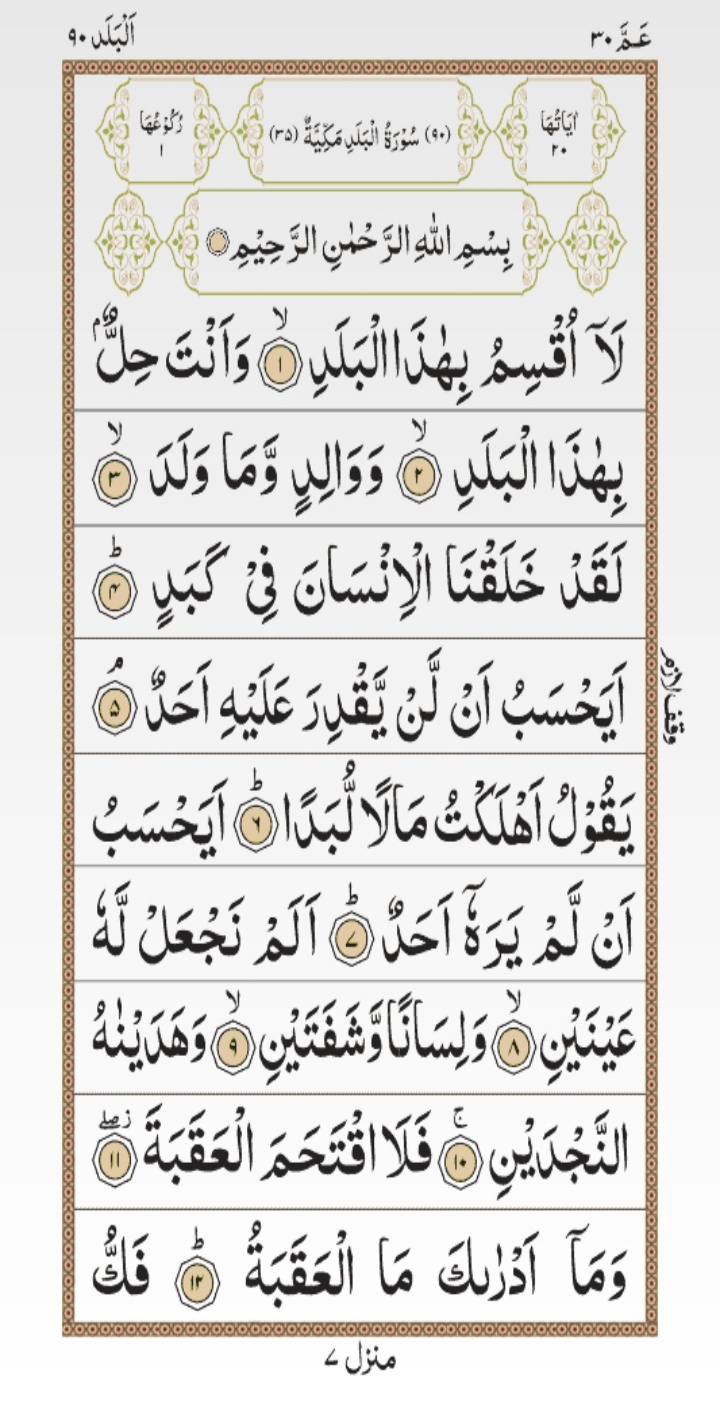 عَمَّ ٣٠
اَلْبَلَد ٩٠
اٰيَاتُهَا ٢٠
(٩٠) سُوْرَةُ الْبَلَدِ مَكِّيَّةٌ (٣٥)
رُكُوْعُهَا ١
بِسْمِ اللّٰهِ الرَّحْمٰنِ الرَّحِيْمِ
لَاۤ اُقْسِمُ بِهٰذَا الْبَلَدِ ۙ‏﴿۱﴾ وَاَنْتَ حِلٌّۢ
بِهٰذَا الْبَلَدِ ۙ‏﴿۲﴾ وَوَالِدٍ وَّمَا وَلَدَ ۙ‏﴿۳﴾
لَقَدْ خَلَقْنَا الْاِنْسَانَ فِىْ كَبَدٍ ؕ‏﴿۴﴾
اَيَحْسَبُ اَنْ لَّنْ يَّقْدِرَ عَلَيْهِ اَحَدٌ ۘ‏﴿۵﴾
وقف لازم
يَقُوْلُ اَهْلَكْتُ مَالًا لُّبَدًا ؕ‏﴿۶﴾ اَيَحْسَبُ
اَنْ لَّمْ يَرَهٗۤ اَحَدٌ ؕ‏﴿۷﴾ اَلَمْ نَجْعَلْ لَّهٗ
عَيْنَيْنِ ۙ‏﴿۸﴾ وَلِسَانًا وَّشَفَتَيْنِ ۙ‏﴿۹﴾ وَهَدَيْنٰهُ
النَّجْدَيْنِ ۚ‏﴿۱۰﴾ فَلَا اقْتَحَمَ الْعَقَبَةَ زۖ‏﴿۱۱﴾
وَمَاۤ اَدْرٰٮكَ مَا الْعَقَبَةُ ؕ‏﴿۱۲﴾ فَكُّ
منزل ٧